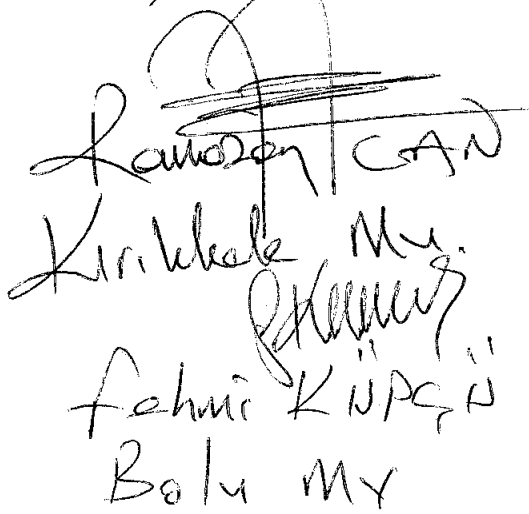 Ramazan CAN
Kırıkkale Mv.
Fehmi KÜPÇÜ
Bolu Mv